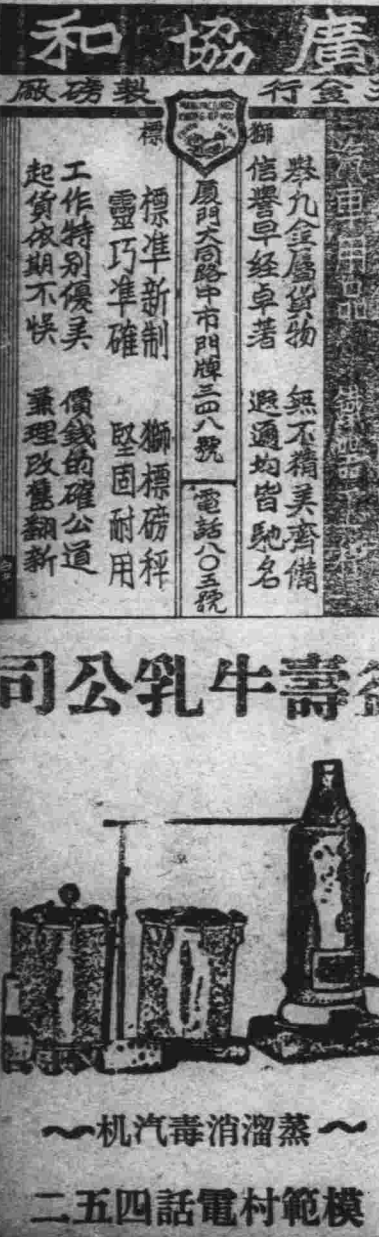 廣協和
金行 製磅廠
獅標
MANUFACTURED
汽車用品
舉凡金屬貨物 無不精美齊備
信譽早经卓著 遐邇均皆馳名
厦門大同路中市門牌三四八號 電話八〇五號
標准新制 獅標磅秤
靈巧准確 堅固耐用
工作特别優美 價錢的確公道
起貨依期不悞 兼理改舊翻新
壽牛乳公司
～蒸溜消毒汽机～
模範村電話四五二